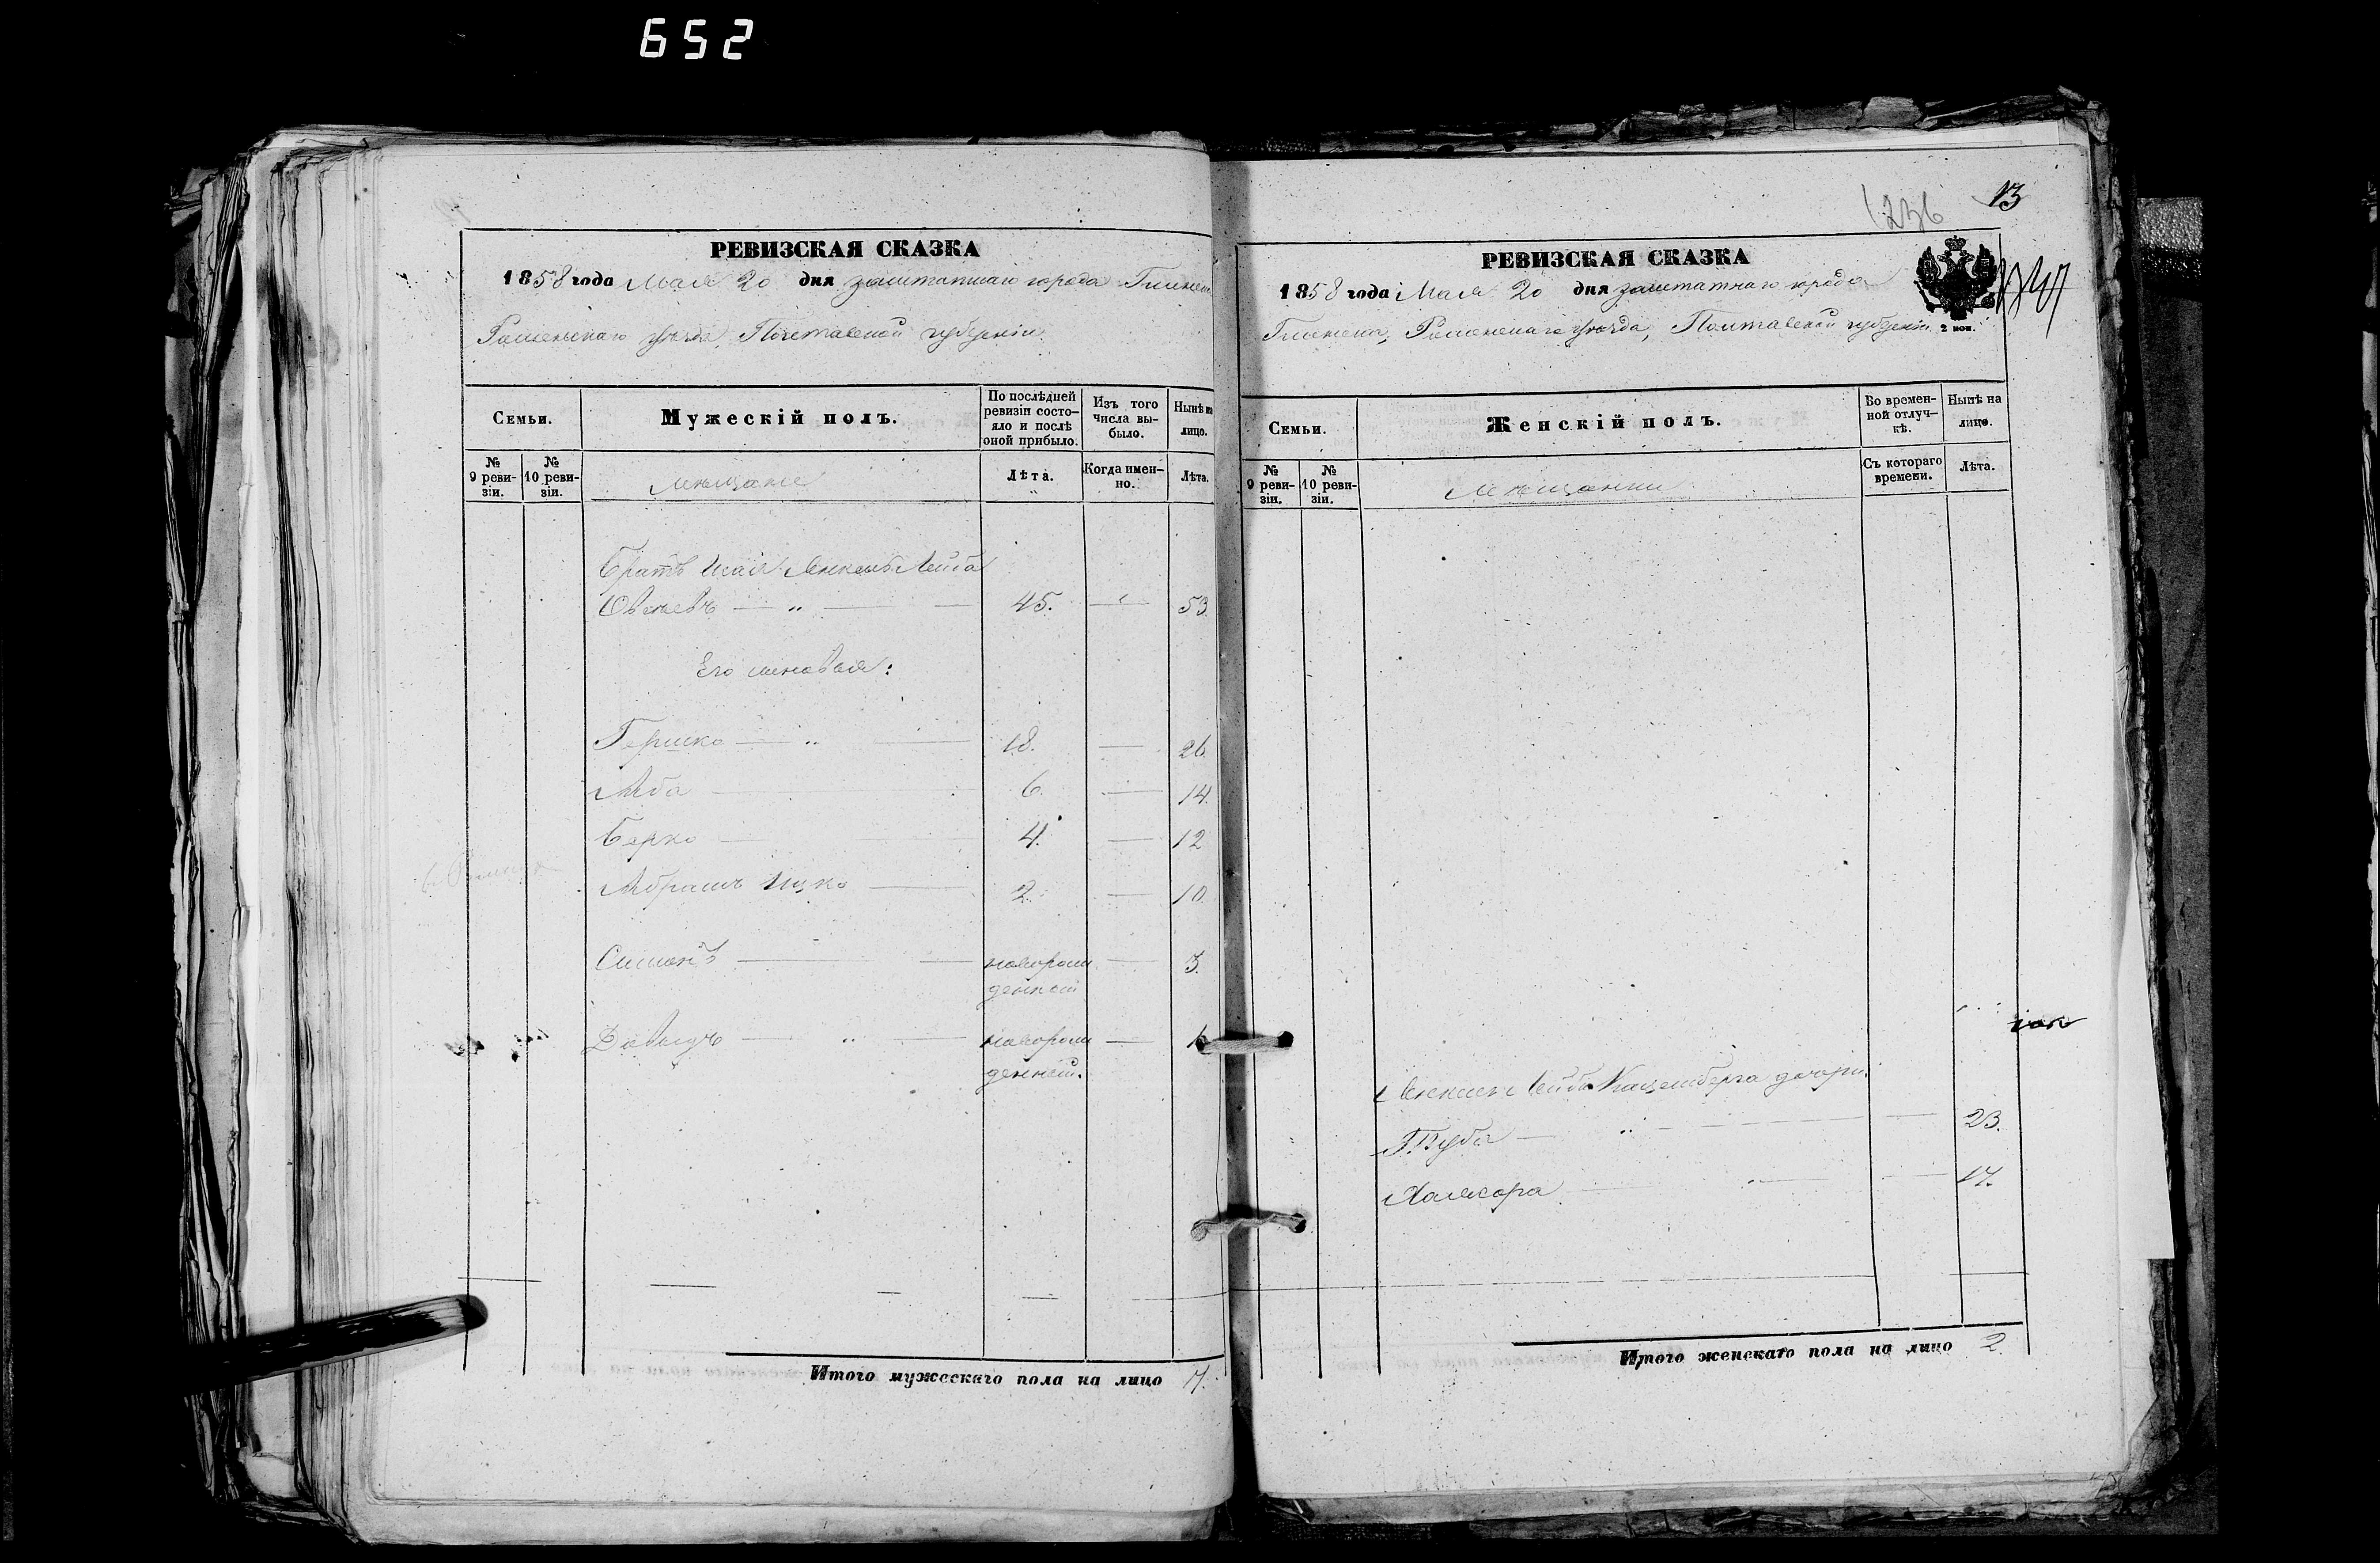 652
РЕВИЗСКАЯ СКАЗКА
1858 года Мая 20 дня заштатнаго города Глинск
Роменьскаго уѣзда, Полтавской губерніи.
Семьи.
Мужескій полъ.
По послѣдней ревизіи состо-
яло и послѣ
оной прибыло.
Изъ того
числа вы-
было.
Нынѣ на
лицо.
№
9 реви-
зіи.
№
10 реви-
зіи.
мѣщане
Лѣта.
Когда имен-
но.
Лѣта.
Братъ Лейба
45. 53
Его сыновья:
Гершко 18. 26
Аба 6. 14.
Берко 4. 12
Абрамъ Ицко 2. 10.
Симонъ новорож
денной 3.
Давыдъ новорож
денной. 1
Итого мужескаго пола на лицо 7.
1236
13
РЕВИЗСКАЯ СКАЗКА
1858 года Мая 20 дня заштатнаго города
Глинска, Роменскаго уѣзда, Полтавской губерніи.
2 коп.
Семьи.
Женскій полъ.
Во времен-
ной отлуч-
кѣ.
Нынѣ на
лицо.
№
9 реви-
зіи.
№
10 реви-
зіи.
мѣщанки
Съ котораго
времени.
Лѣта.
Лейбы Кацемберга дочери.
23.
Хаясора 17.
Итого женскаго пола на лицо 2.